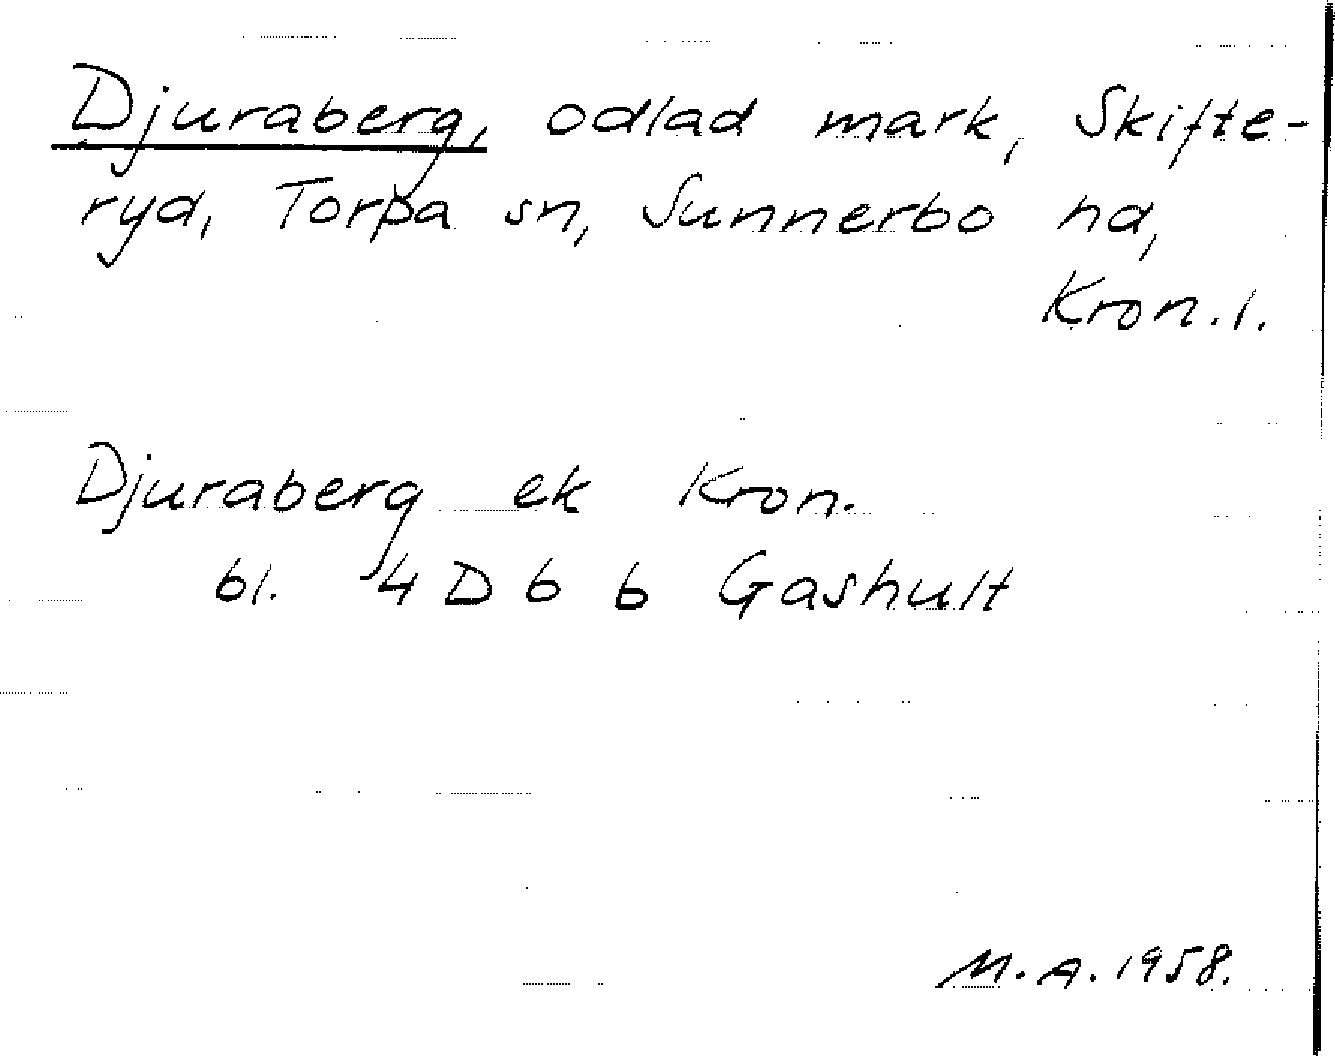 Djuraberg, odlad mark, Skifte-
ryd, Torpa sn, Sunnerbo hd,
Kron. l.
Djuraberg ek Kron.
bl. 4 D 6 b Gashult
M. A. 1958.